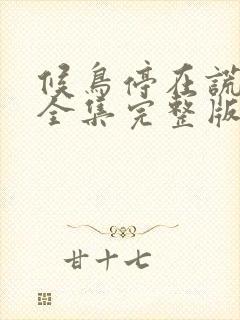 候鸟停在谎
全集完整版
甘十七